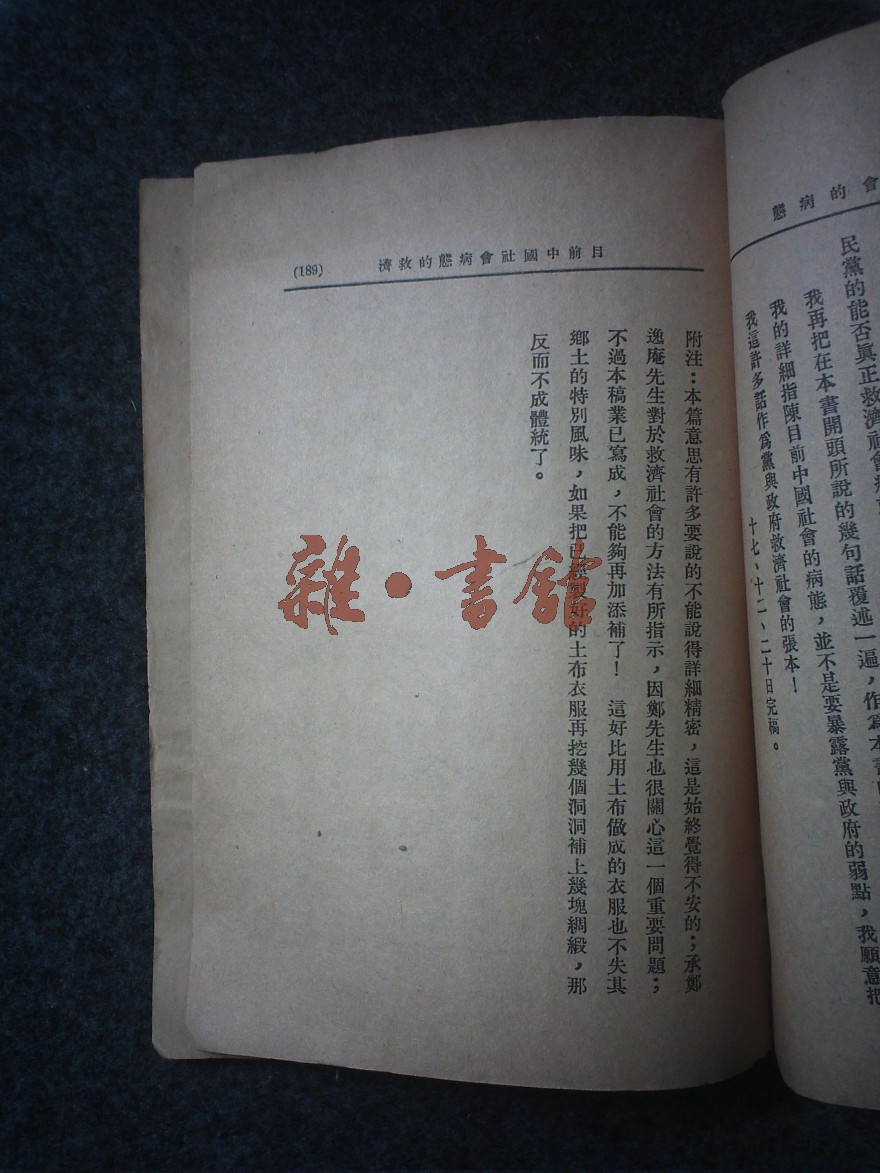 會的病態
民黨的能否真正救濟社會
我再把在本書開頭所說的幾句話覆述一遍，作爲本書
我的詳細指陳目前中國社會的病態，並不是要暴露黨與政府的弱點，我願意把
我這許多話作爲黨與政府救濟社會的張本！
十七、十二、二十日完稿。
目前中國社會病態的救濟
(189)
附注：本篇意思有許多要說的不能說得詳細精密，這是始終覺得不安的；承鄭
逸庵先生對於救濟社會的方法有所指示，因鄭先生也很關心這一個重要問題；
不過本稿業已寫成，不能夠再加添補了！　這好比用土布做成的衣服也不失其
鄉土的特別風味，如果把已經製好的土布衣服再挖幾個洞洞補上幾塊綢緞，那
反而不成體統了。
雜・書館